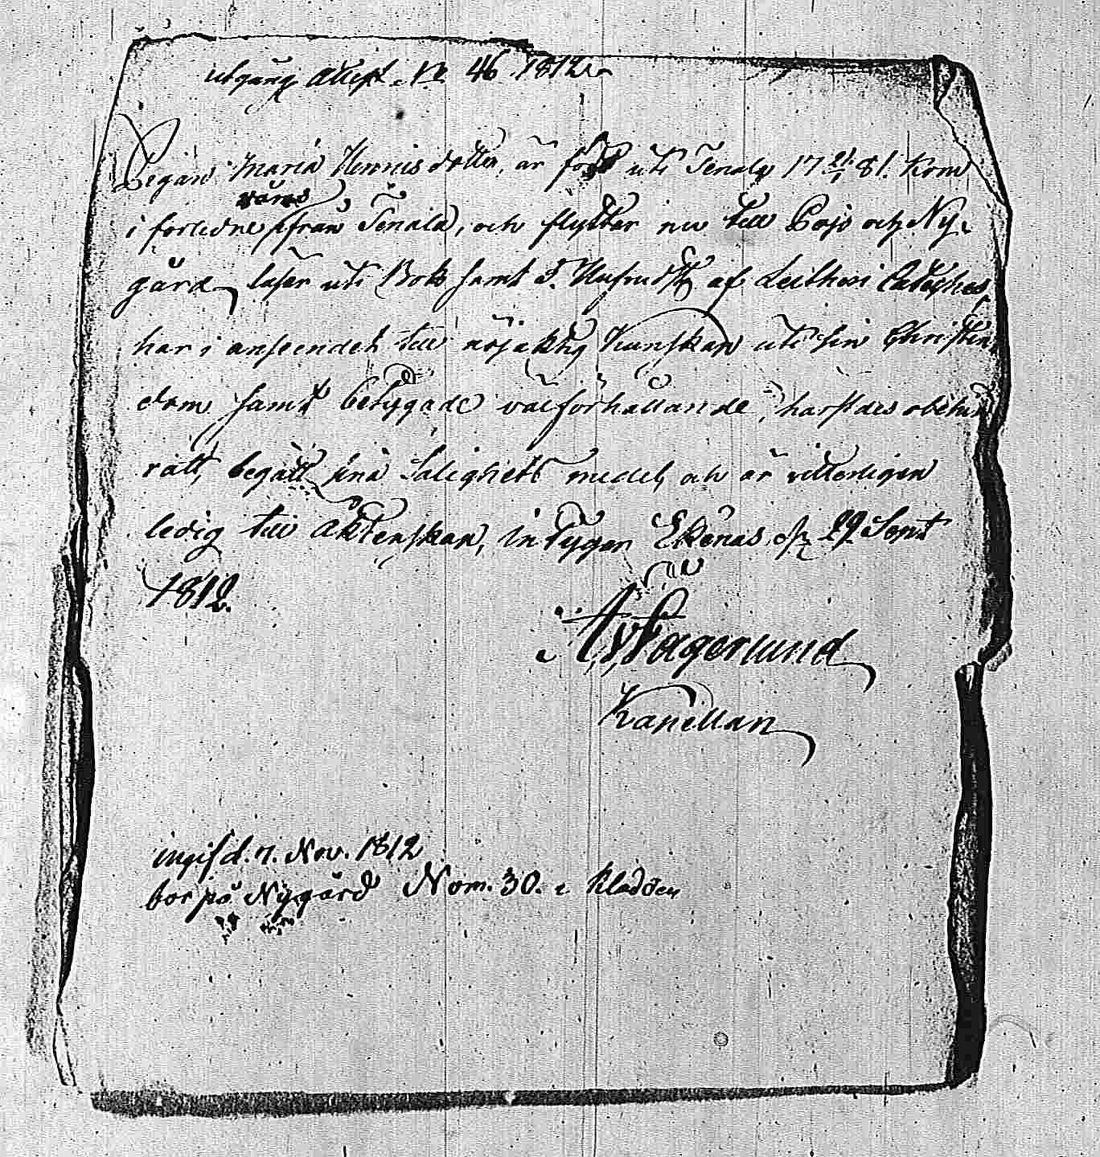 utgång Attest No 46 1812
Pegan Maria Hennis dotter, är född uti Tenala 17 21/1 81. Kom
våras
i förledne från Tenala, och flytter nu till Pojo och Ny-
gård, läser uti Bok samt af Lutheri Cateches
har i anseende till nöjaktig Kunskap uti sin Christen
dom samt betygade välförhållande, härstädes obehin
rått, begått sina Salighets medel, och är vitterligen
ledig till Äktenskap, intygar Ekenäs d. 29 Sept
1812.
Fagerlund
Kapellan
ingif d. 7. Nov. 1812
bor på Nygård Nom. 30. i Kladden